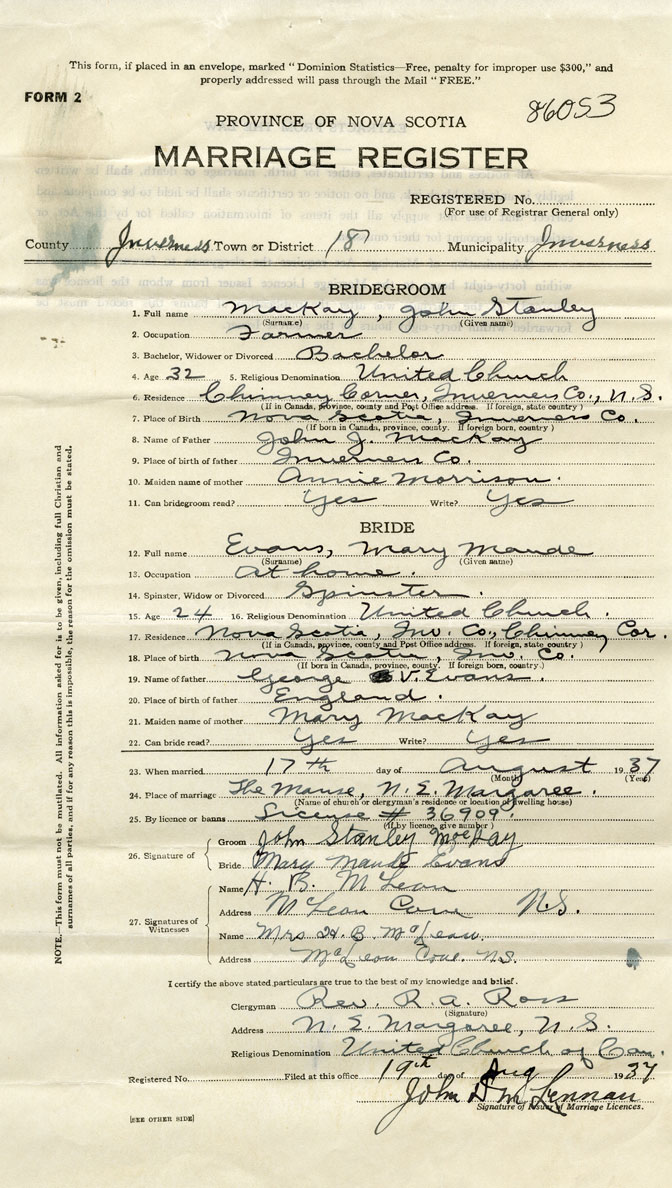 This form, if placed in an envelope, marked “ Dominion Statistics—Free, penalty for improper use $300,” and
properly addressed will pass through the Mail “ FREE.”
FORM 2
86053
PROVINCE OF NOVA SCOTIA
MARRIAGE REGISTER
REGISTERED No.
(For use of Registrar General only)
County Inverness Town or District 187 Municipality Inverness
BRIDEGROOM
1. Full name MacKay, John Stanley
(Surname) (Given name)
2. Occupation Farmer
3. Bachelor, Widower or Divorced Bachelor
4. Age 32 5. Religious Denomination United Church
6. Residence Chimney Corner, Inverness Co., N.S.
(If in Canada, province, county and Post Office address. If foreign, state country )
7. Place of Birth Nova Scotia, Inverness Co.
(If born in Canada, province, county. If foreign born, country )
8. Name of Father John J. MacKay
9. Place of birth of father Inverness Co.
10. Maiden name of mother Annie Morrison.
11. Can bridegroom read? Yes Write? Yes
BRIDE
12. Full name Evans, Mary Maude
(Surname) (Given name)
13. Occupation At home.
14. Spinster, Widow or Divorced Spinster.
15. Age 24 16. Religious Denomination United Church.
17. Residence Nova Scotia, Inv. Co., Chimney Cor.
(If in Canada, province, county and Post Office address. If foreign, state country )
18. Place of birth Nova Scotia, Inv. Co.
(If born in Canada, province, county. If foreign born, country.)
19. Name of father George V. Evans.
20. Place of birth of father England.
21. Maiden name of mother Mary MacKay
22. Can bride read? Yes Write? Yes
23. When married 17th day of August 1937
(Month) (Year)
24. Place of marriage The Manse, N. E. Margaree.
(Name of church or clergyman's residence or location of dwelling house)
25. By licence or banns License # 36909.
(If by licence, give number )
26. Signature of
Groom John Stanley MacKay
Bride Mary Maude Evans
27. Signatures of Witnesses
Name H. B. McLean
Address McLean Cove N.S.
Name Mrs H. B. McLean.
Address McLean Cove. N.S.
I certify the above stated particulars are true to the best of my knowledge and belief.
Clergyman Rev. R. A. Ross
(Signature)
Address N. E. Margaree, N. S.
Religious Denomination United Church of Can.
Registered No. Filed at this office 19th day of Aug 1937
John D McLennan
Signature of Issuer of Marriage Licences.
[SEE OTHER SIDE]
NOTE.—This form must not be mutilated. All information asked for is to be given, including full Christian and
surnames of all parties, and if for any reason this is impossible, the reason for the omission must be stated.